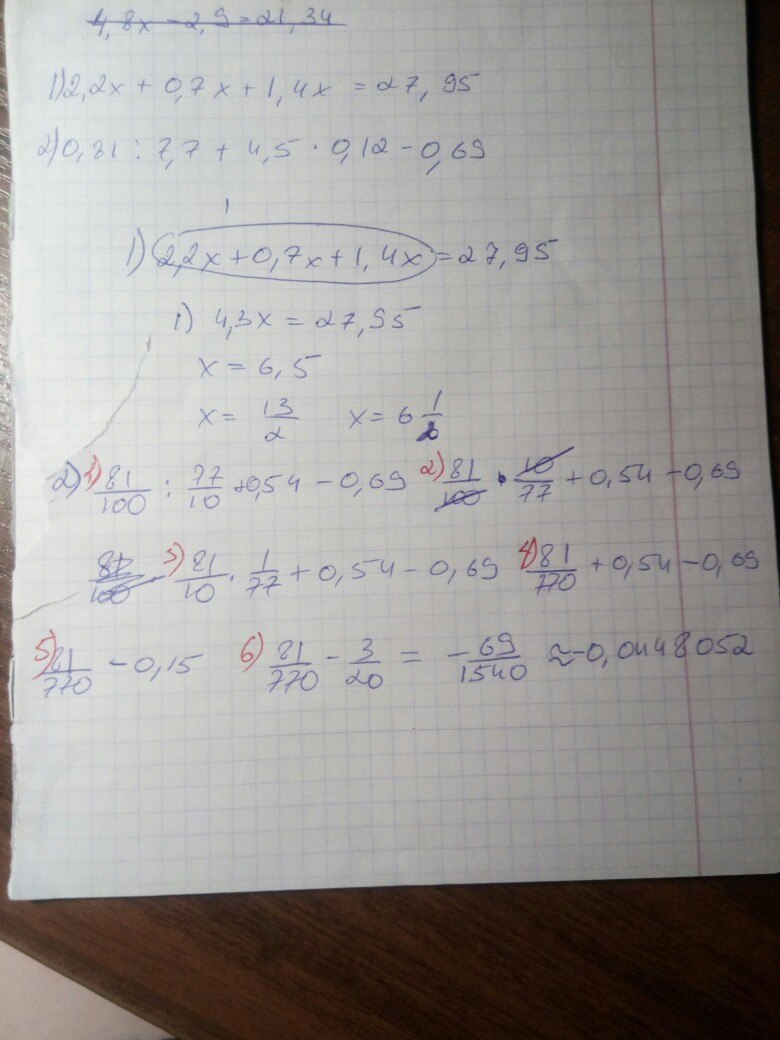 4,8x - 2,9 = 21,34
1) 2,2x + 0,7x + 1,4x = 27,95
2) 0,81 : 7,7 + 4,5 · 0,12 - 0,69
1) 2,2x + 0,7x + 1,4x = 27,95
1) 4,3x = 27,95
x = 6,5
x = 13/2 x = 6 1/2
2) 1) 81/100 : 77/10 + 0,54 - 0,69 2) 81/100 · 10/77 + 0,54 - 0,69
81/100 3) 81/10 · 1/77 + 0,54 - 0,69 4) 81/770 + 0,54 - 0,69
5) 81/770 - 0,15 6) 81/770 - 3/20 = -69/1540 ≈ -0,0448052